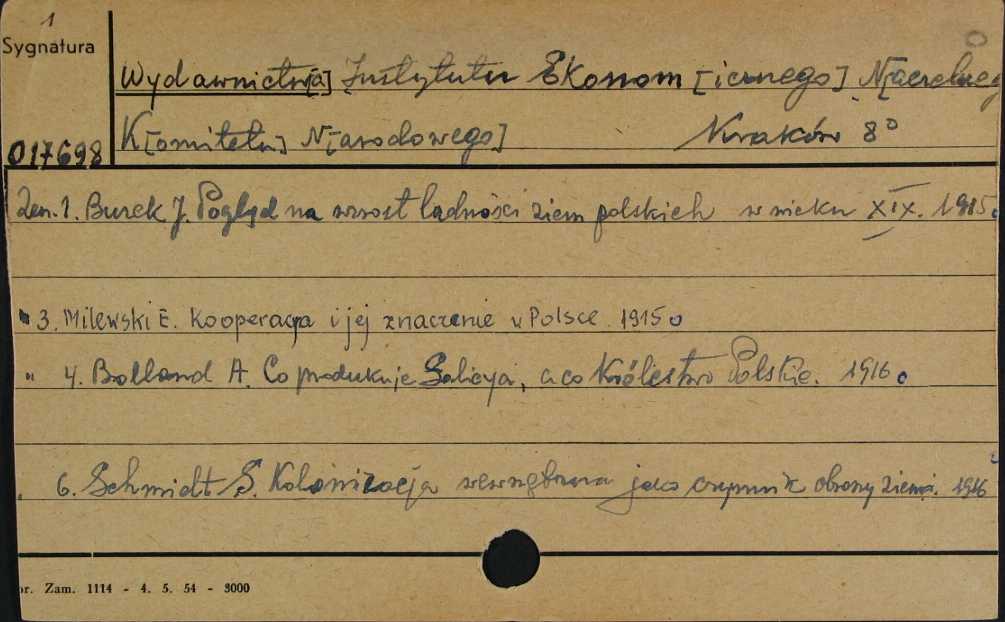 1
Sygnatura
Wydawnictw[a] Instytutu Ekonom[icznego] N[aczelneg
K[omitetu] N[arodowego] Kraków 8°
017698
Zesz. 1. Burek J. Pogląd na wzrost ludności ziem polskich w wieku XIX. 1915.
" 3. Milewski E. Kooperacya i jej znaczenie w Polsce 1915
" 4. Bolland A. Co produkuje Galicya, a co Królestwo Polskie. 1916
6. Schmidt S. Kolonizacja wewnętrzna jako czynnik obrony ziemi. 1916
or. Zam. 1114 - 4. 5. 54 - 3000